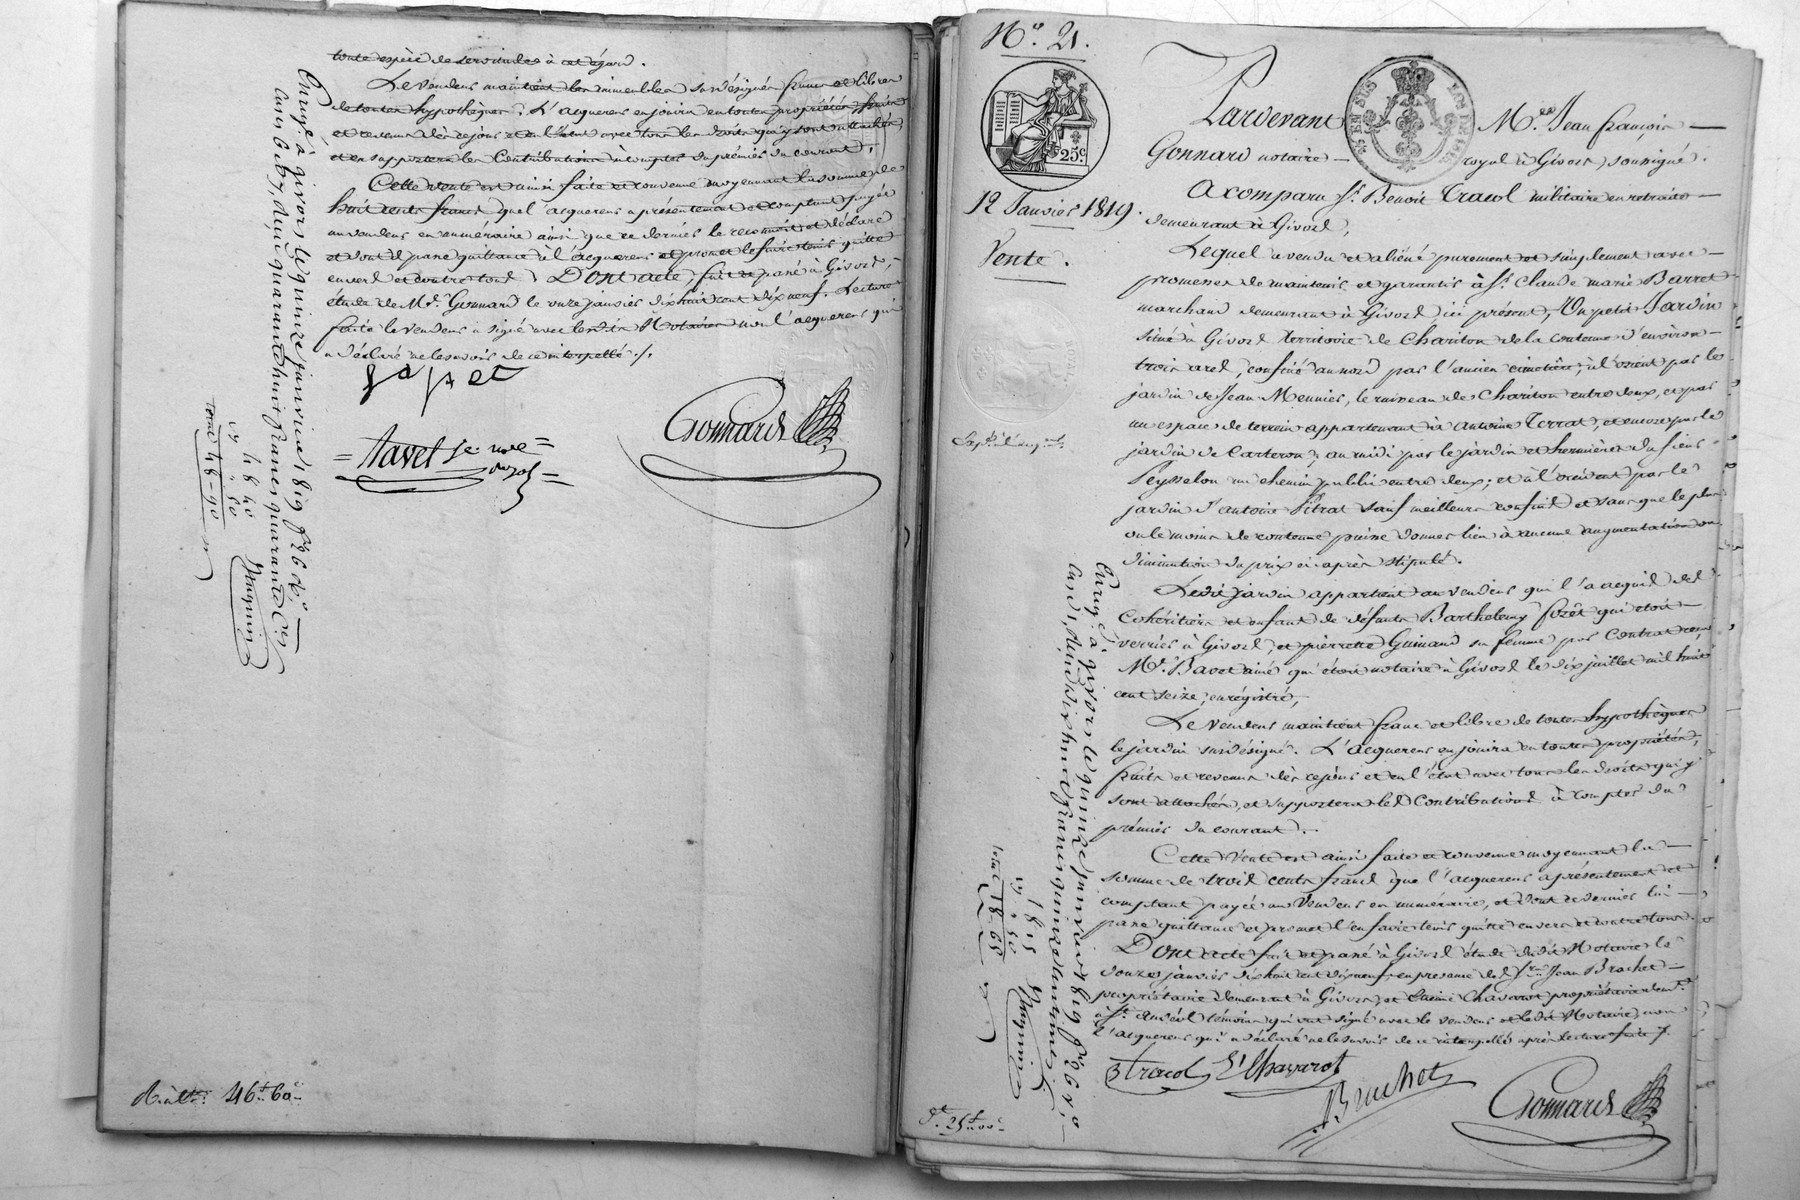 toute espèce de servitudes à cet égard.
Le vendeur maintient les immeubles susdésignés francs et libres
de toutes hypothèques. L'acquereur en jouira en toutes propriétés, fruits
et revenus dès ce jour et en l'état avec tous les droits qui y sont attachés,
et en supportera les contributions à compter du premier du courant.
Cette vente est ainsi faite et convenue moyennant la somme de
huit cents francs que l'acquereur a présentement et comptant payée
au vendeur en numéraire ainsi que ce dernier le reconnoit et déclare
et dont il passe quittance à l'acquereur et promet le faire tenir quitte
envers et contre tous. Dont acte, fait et passé à Givors,
étude de Me. Gonnard le onze janvier dix huit cent dix neuf. Lecture
faite le vendeur a signé avec les Notaires non l'acquereur qui
a déclaré ne le savoir de ce interpellé ./.
Gonnard
= Navet
Enregé. à givors le quinze janvier 1819 fo. 26
quarante huit francs quarante ces.
48 40
" 50
total 48.90
46 f. 60 c.
No. 21.
25 c
12 Janvier 1819.
Vente.
Pardevant Me. Jean françois
Gonnard notaire royal à Givors, soussigné.
A comparu Sr. Benoit Tracol militaire en retraite
demeurant à Givors,
Lequel a vendu et aliéné purement et simplement avec
promesse de maintenir et garantir à Sr. Claude marie Barret
marchand demeurant à Givors ici présent, Un petit Jardin
situé à Givors territoire de Chariton de la contenue d'environ
trois ares, confiné au nord par l'ancien cimetière, à l'orient par le
jardin de Jean Meunier, le ruisseau de Chariton entre deux, et par
un espace de terrein appartenant à Antoine Terrat, et encore par le
jardin de Carteron; au midi par le jardin et chenevière du sieur
Peysselon un chemin public entre deux; et à l'occident par le
jardin d'antoine Pitrat sauf meilleurs confins et sans que le plus
ou le moins de contenue puisse donner lieu à aucune augmentation ou
diminution du prix ci après stipulé.
Ledit jardin appartient au vendeur qui l'a acquis des
Cohéritiers et enfans de défunts Barthelemy forêt qui étoit
verrier à Givors, et pierrette Guinand sa femme par Contrat reçu
Me. Bavet ainé qui étoit notaire à Givors le six juillet mil huit
cent seize, enregistré,
Le vendeur maintient franc et libre de toutes hypothèques
le jardin susdésigné. L'acquereur en jouira en toutes propriétés,
fruits et revenus dès ce jour et en l'état avec tous les droits qui y
sont attachés, et supportera les Contributions à compter du
premier du courant.
Cette vente est ainsi faite et convenue moyennant la
somme de trois cents francs que l'acquereur a présentement et
comptant payée au Vendeur en numéraire, et dont ce dernier lui
passe quittance et promet l'en faire tenir quitte envers et contre tous.
Dont acte fait et passé à Givors étude dudit Notaire le
douze janvier dix huit cent dix neuf, en presence des Srs. Jean Brachet
propriétaire demeurant à Givors, et Chavarot propriétaire demt.
à St. Andéol témoins qui ont signé avec le vendeur et ledit Notaire, non
l'acquereur qui a déclaré ne le savoir de ce interpellé après lecture faite ./.
Tracol Chavarot
Brachet
Gonnard
Enregé. à givors le quinze janvier 1819 fo. 26 vo.
dix huit francs quinze centimes
18 15
" 50
total 18.65